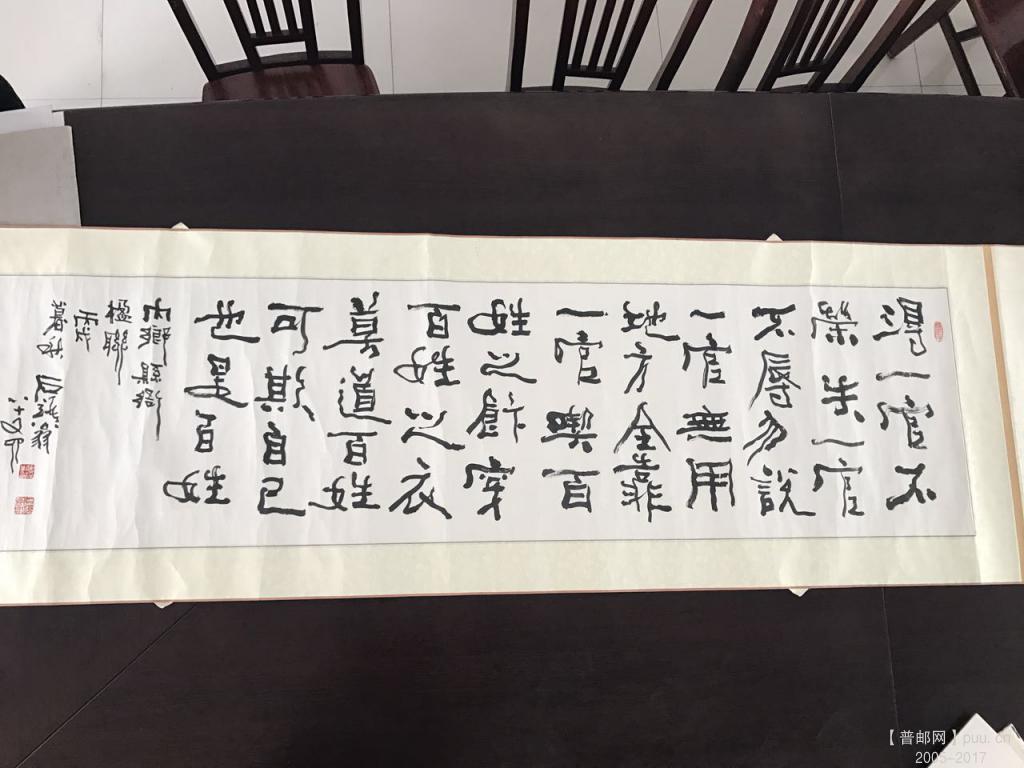 得一官不
榮失一官
不辱勿說
一官無用
地方全靠
一官喫百
姓之飯穿
百姓之衣
莫道百姓
可欺自己
也是百姓
內鄉縣衙
楹聯
丙戌
暮秋
【普邮网】puu.cn
2005-2017